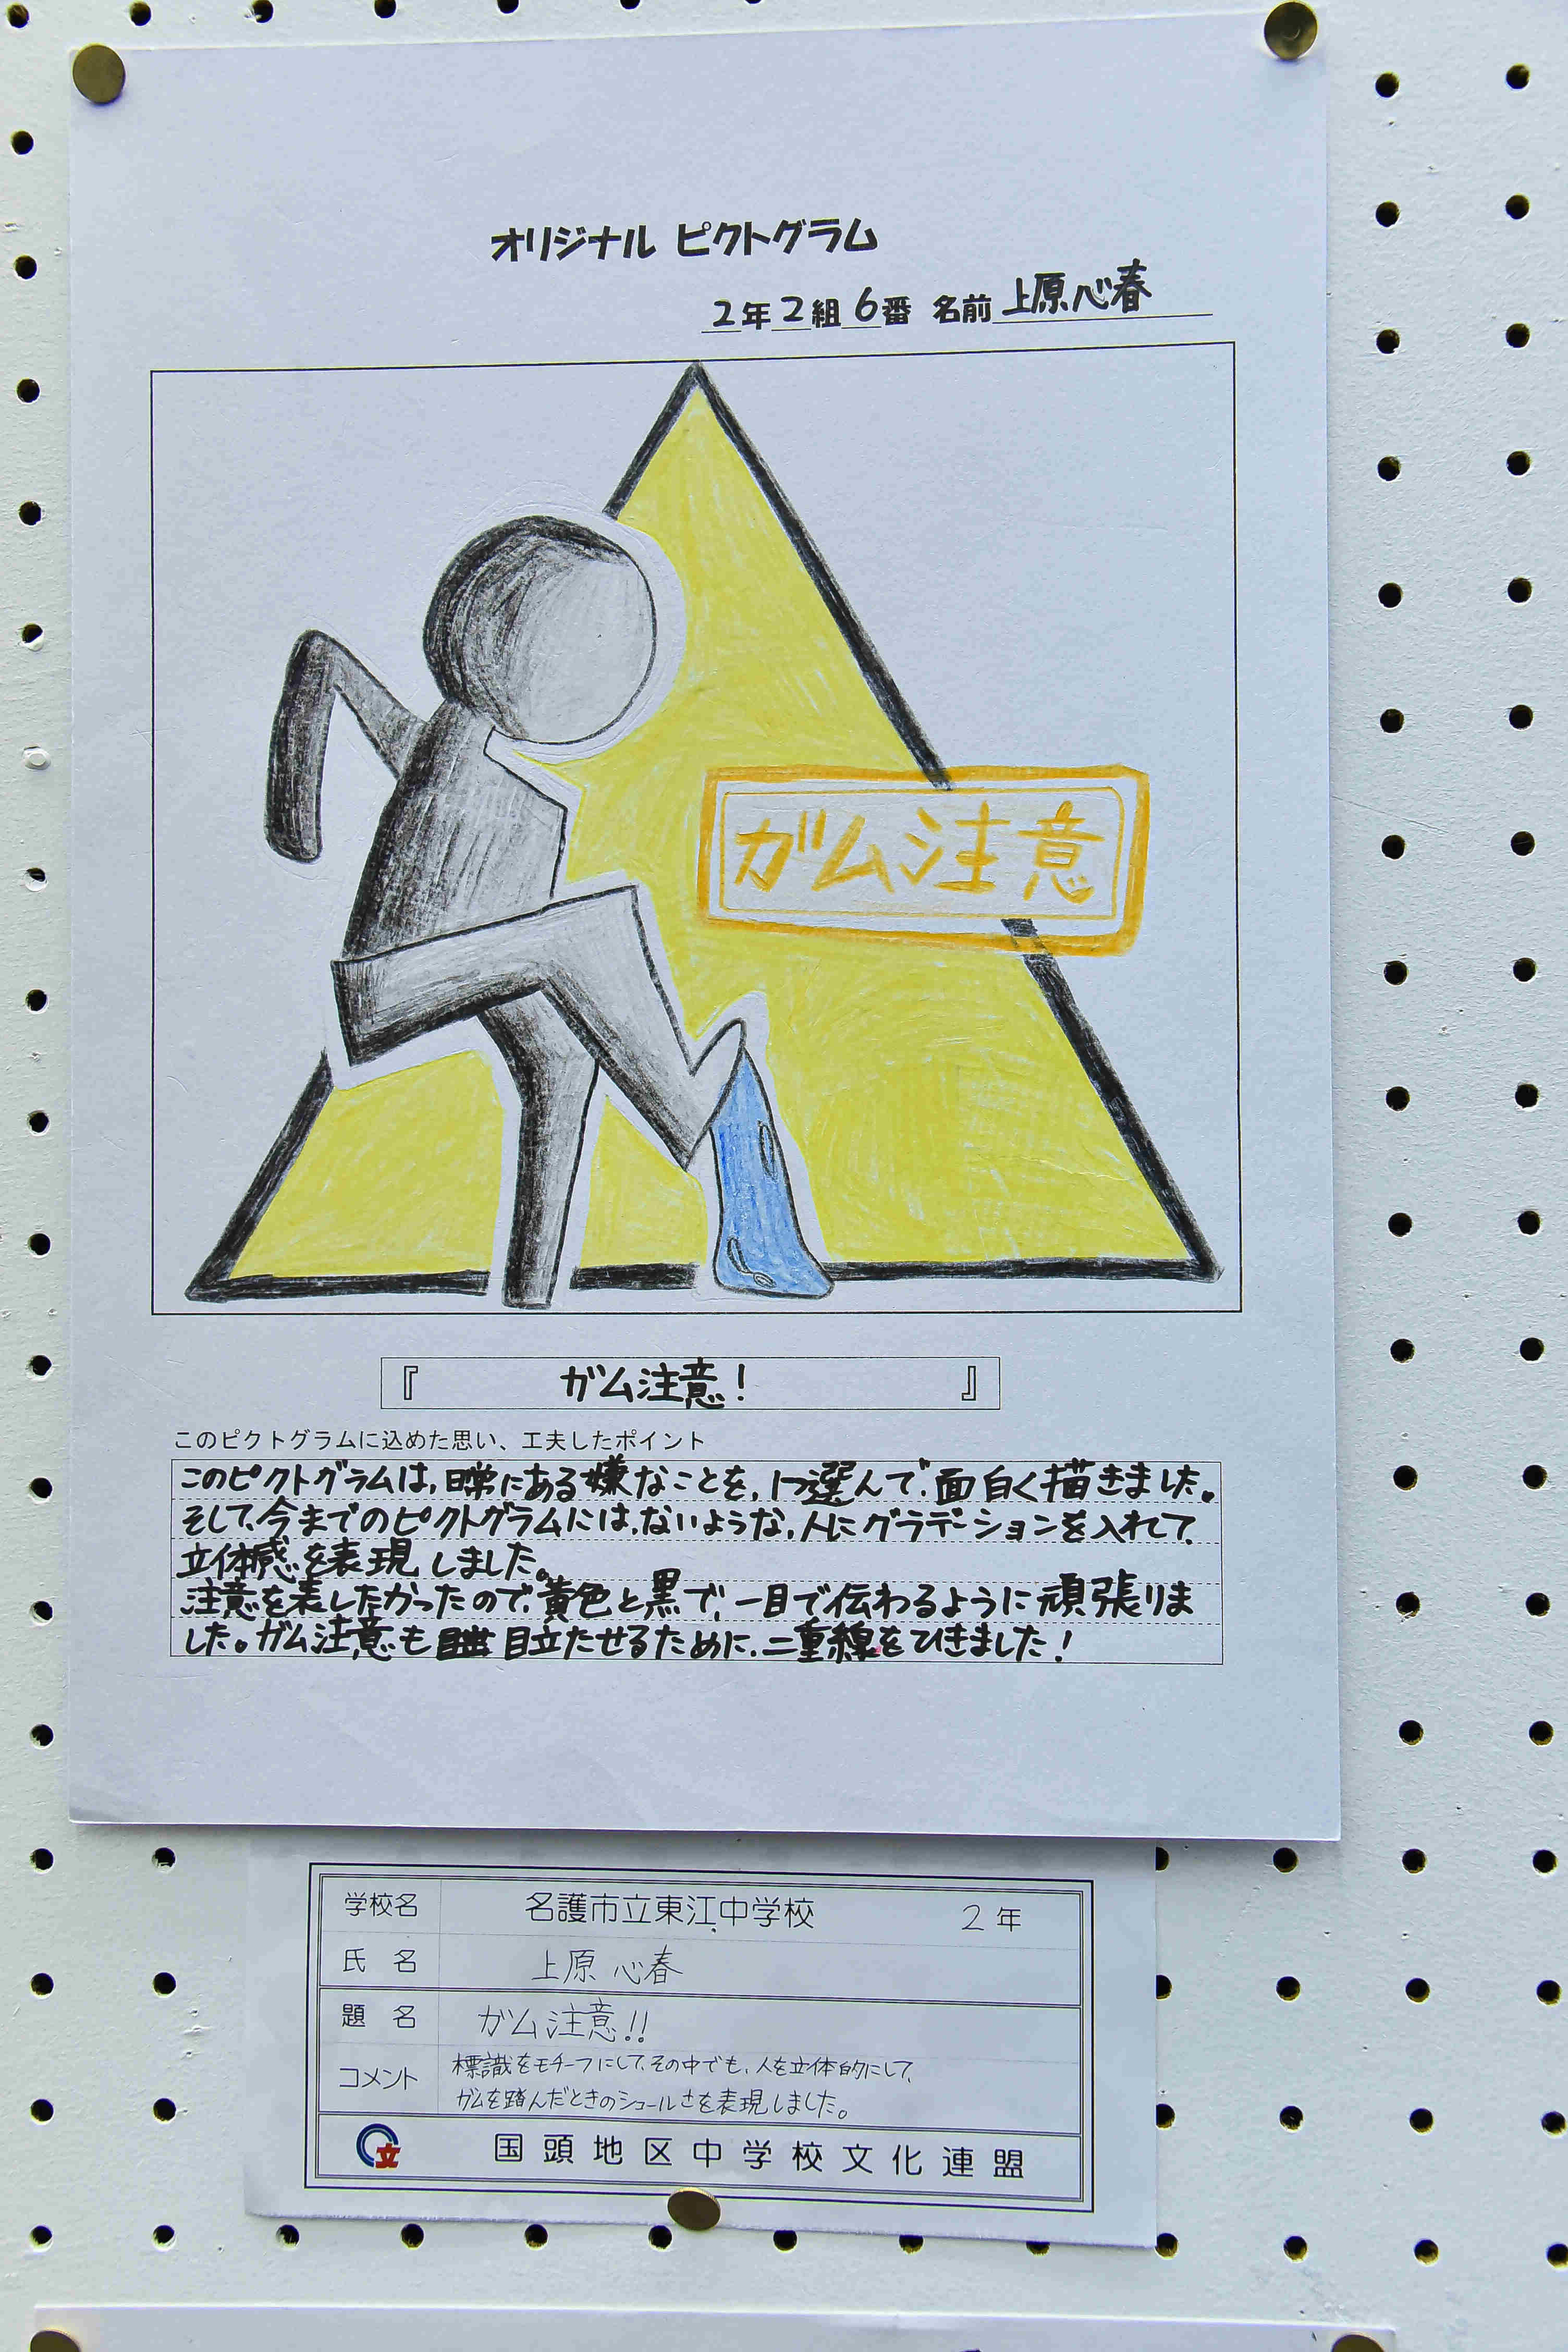 オリジナル ピクトグラム
2年2組6番 名前 上原心春
ガム注意
『 ガム注意! 』
このピクトグラムに込めた思い、工夫したポイント
このピクトグラムは,日常にある嫌なことを,1つ選んで、面白く描きました。
そして、今までのピクトグラムには、ないような,人にグラデーションを入れて、
立体感を表現しました。
注意を表したかったので、黄色と黒で、一目で伝わるように頑張りま
した。ガム注意も 目立たせるために、二重線をひきました!
学校名 名護市立東江中学校 2年
氏名 上原 心春
題名 ガム注意!!
コメント 標識をモチーフにして、その中でも、人を立体的にして、
ガムを踏んだときのシュールさを表現しました。
立 国頭地区中学校文化連盟